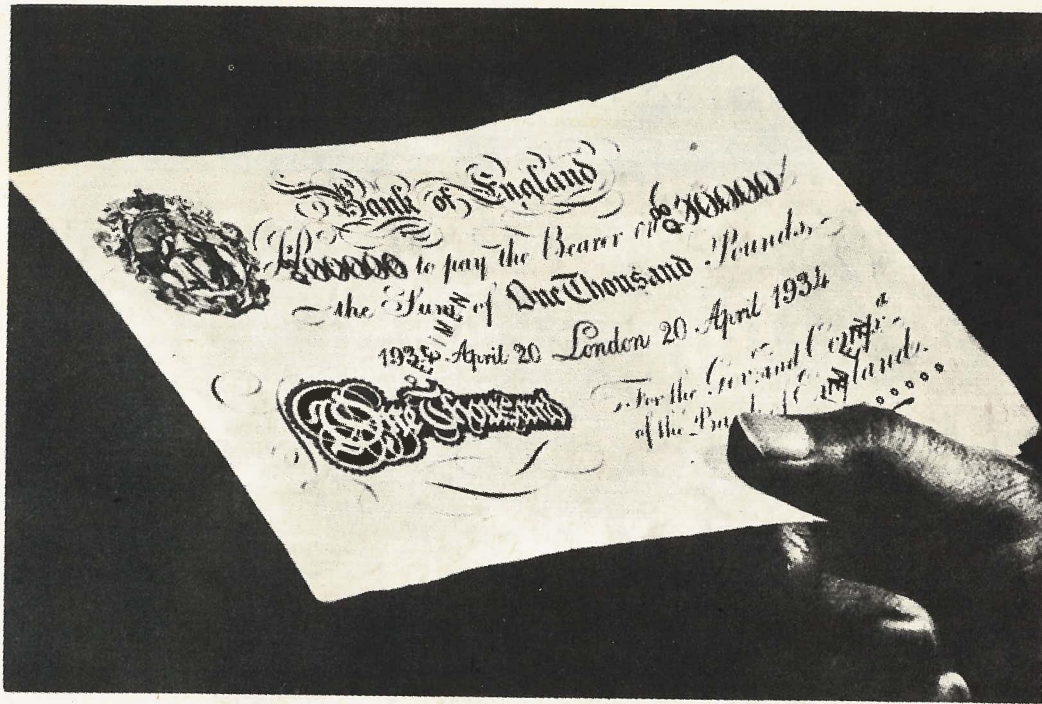 Bank of England
to pay the Bearer on
the Sum of One Thousand Pounds,
1934 April 20 London 20 April 1934
For the Gov.r and Comp.a
of the England.
One Thousand